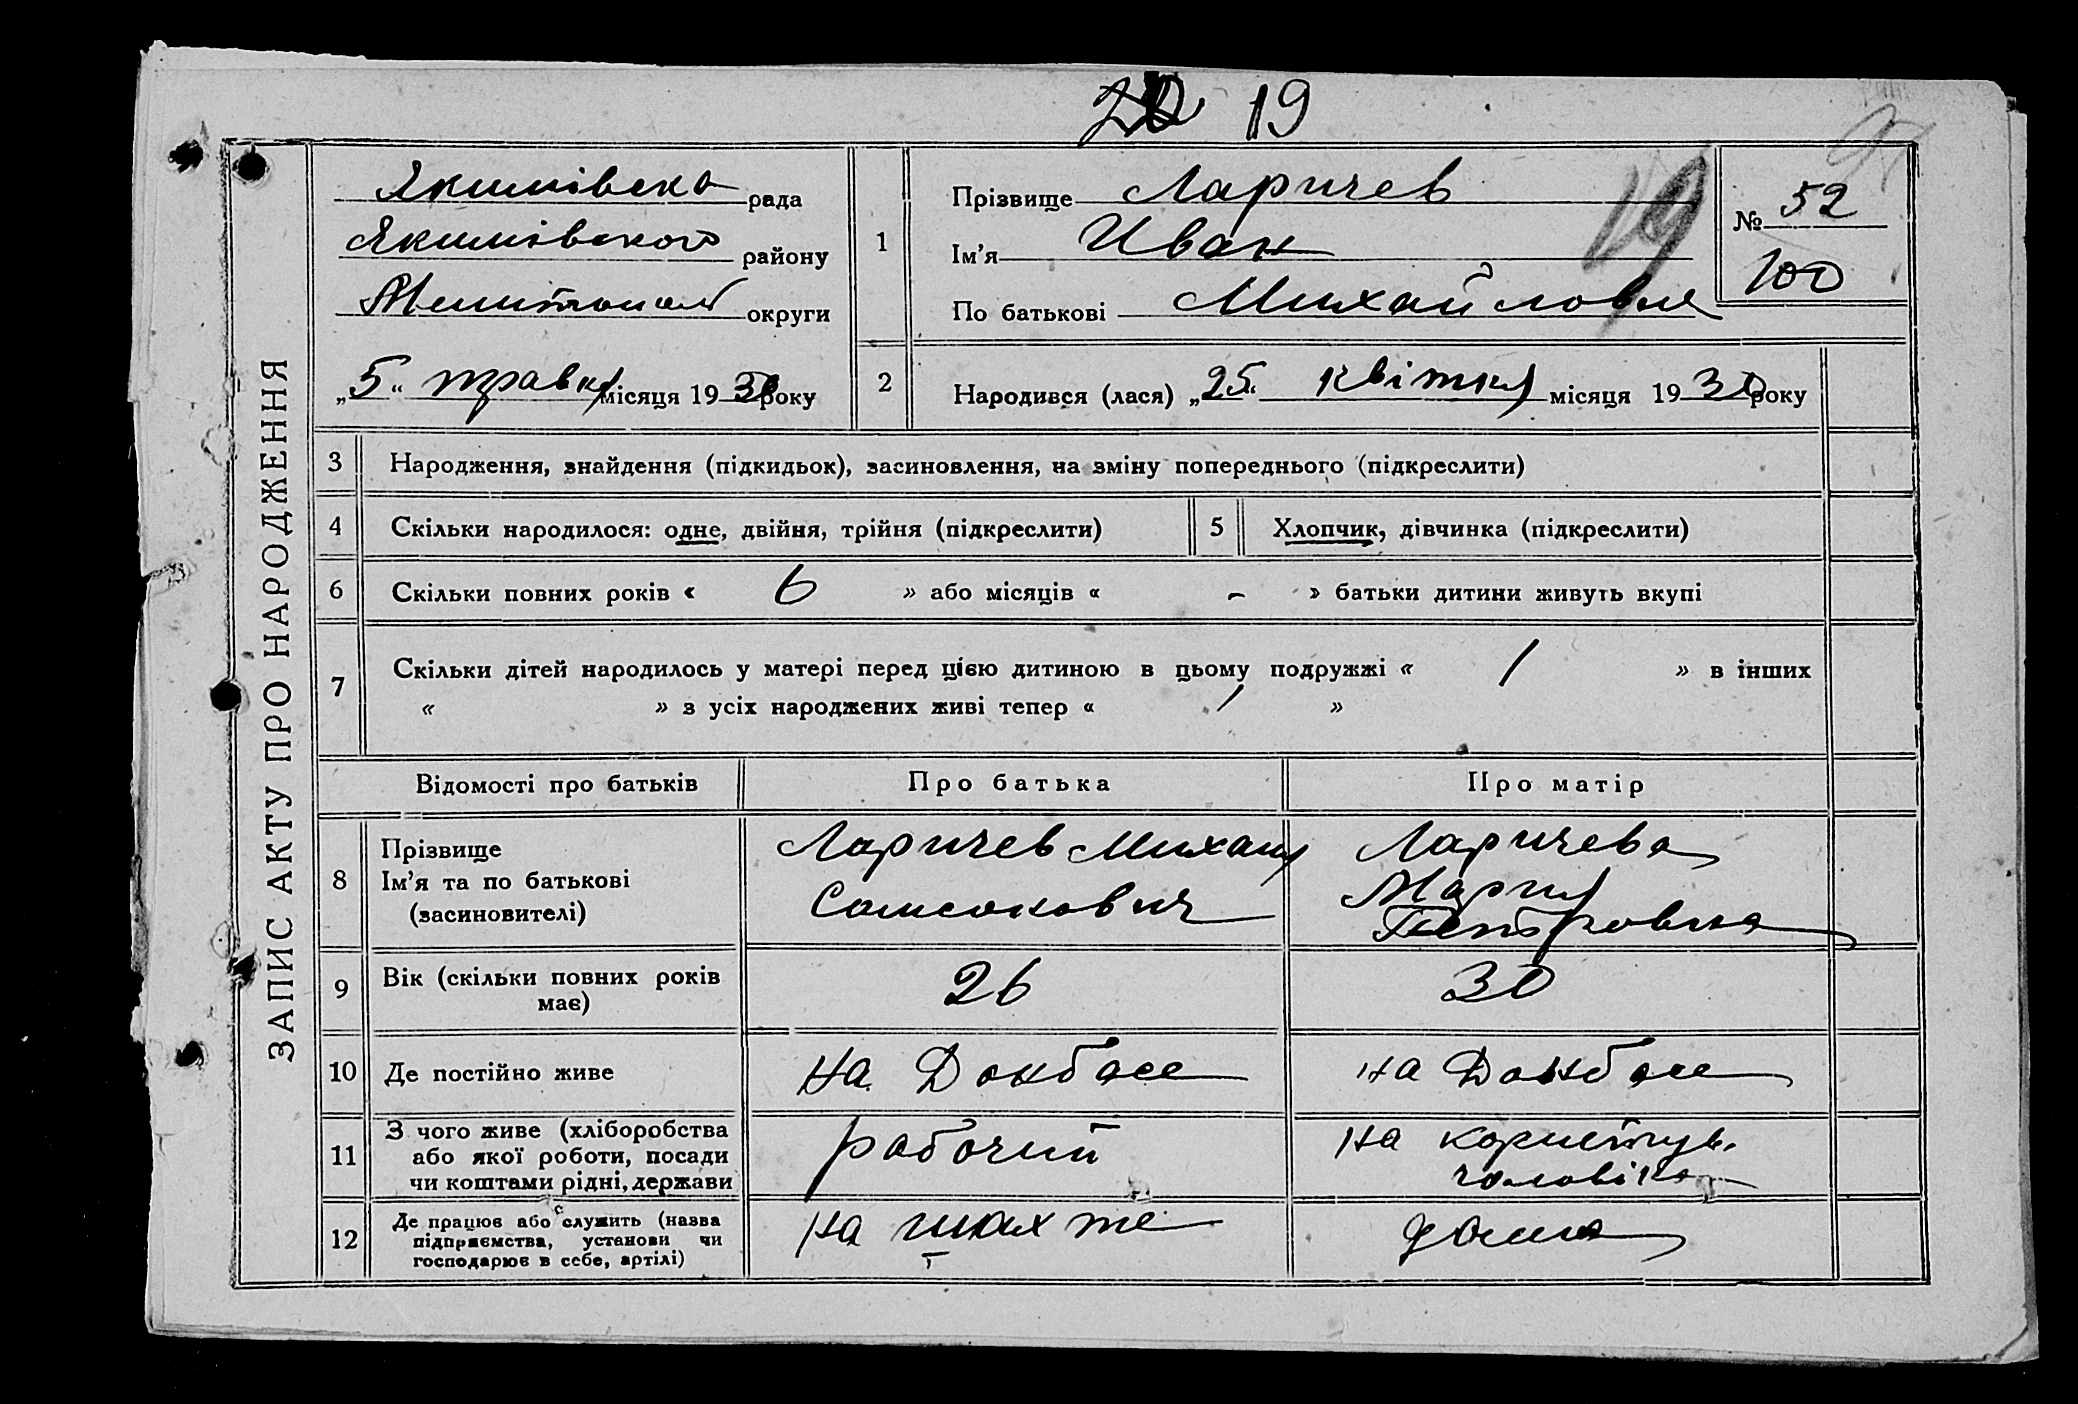 19
Якимівска рада
Якимівского району
Мелитопол округи
„5“ травня місяця 1930 року
1
Прізвище Ларичев
Ім’я Иван
По батькові Михайлович
19
№ 52
100
2
Народився (лася) „25“ квітня місяця 1930 року
ЗАПИС АКТУ ПРО НАРОДЖЕННЯ
3 Народження, знайдення (підкидьок), засиновлення, на зміну попереднього (підкреслити)
4 Скільки народилося: одне, двійня, трійня (підкреслити)
5 Хлопчик, дівчинка (підкреслити)
6 Скільки повних років « 6 » або місяців « - » батьки дитини живуть вкупі
7 Скільки дітей народилось у матері перед цією дитиною в цьому подружжі « 1 » в інших
« » з усіх народжених живі тепер « 1 »
Відомості про батьків Про батька Про матір
8
Прізвище
Ім’я та по батькові
(засиновителі)
Ларичев Михаил
Самсонович
Ларичева
Мария
Петровна
9
Вік (скільки повних років
має)
26
30
10 Де постійно живе
на Донбасе
на Донбасе
11
З чого живе (хліборобства
або якої роботи, посади
чи коштами рідні, держави
рабочий
на
чоловіка
12
Де працює або служить (назва
підприємства, установи чи
господарює в себе, артілі)
на шахте
дома